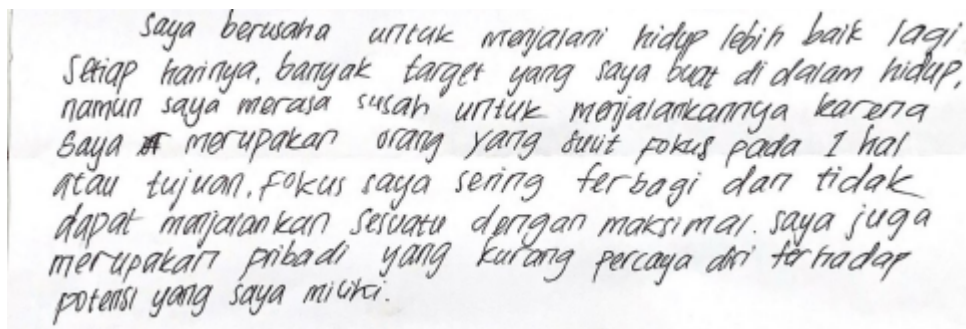 Saya berusaha untuk menjalani hidup lebih baik lagi
setiap harinya. banyak target yang saya buat di dalam hidup,
namun saya merasa susah untuk menjalankannya karena
saya merupakan orang yang sulit fokus pada 1 hal
atau tujuan. Fokus saya sering terbagi dan tidak
dapat menjalankan sesuatu dengan maksimal. saya juga
merupakan pribadi yang kurang percaya diri terhadap
potensi yang saya miliki.